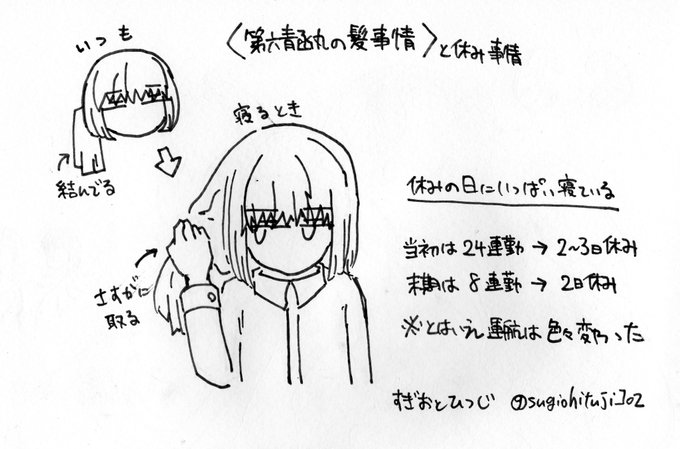 〈第六青函丸の髪事情〉と休み事情
いつも
結んでる
寝るとき
さすがに
取る
休みの日にいっぱい寝ている
当初は24連勤→2~3日休み
末期は8連勤→2日休み
※とはいえ運航は色々変わった
すぎおとひつじ @sugiohituji702